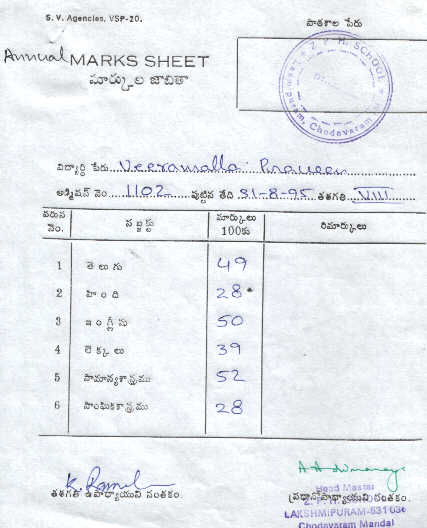 S. V. Agencies, VSP-20.
పాఠశాల పేరు
Annual MARKS SHEET
మార్కుల జాబితా
Z. P. H. SCHOOL
Chodavaram
విద్యార్థి పేరు Veeramalla Praveen
అడ్మిషన్ నెం 1102 పుట్టిన తేది 31-8-95 తరగతి VIII
వరుస నెం. సబ్జక్టు మార్కులు 100కు రిమార్కులు
1 తెలుగు 49
2 హింది 28*
3 ఇంగ్లీసు 50
4 లెక్కలు 39
5 సామాన్యశాస్త్రము 52
6 సాంఘికశాస్త్రము 28
తరగతి ఉపాధ్యాయుని సంతకం.
ప్రధానోపాధ్యాయుని సంతకం.
Head Master
LAKSHMIPURAM-531036
Chodavaram Mandal